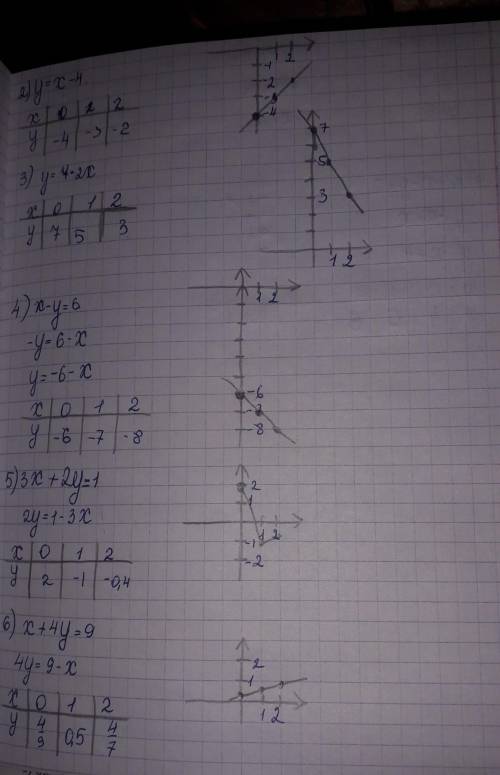 2) y=x-4
x 0 1 2
y -4 -3 -2
-1 2
-2
-3
-4
3) y=7-2x
x 0 1 2
y 7 5 3
7
5
3
1 2
4) x-y=6
-y=6-x
y=-6-x
x 0 1 2
y -6 -7 -8
1 2
-6
-7
-8
5) 3x+2y=1
2y=1-3x
x 0 1 2
y 2 -1 -0,4
2
1
1 2
-1
-2
6) x+4y=9
4y=9-x
x 0 1 2
y 4/9 0,5 4/7
2
1
1 2